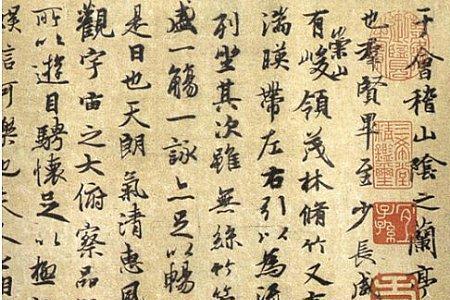 于會稽山陰之蘭亭
也羣賢畢至少長咸
有崇山峻領茂林脩竹又
湍暎帶左右引以為流
列坐其次雖無絲竹管
盛一觴一詠亦足以暢
是日也天朗氣清惠風
觀宇宙之大俯察品
所以遊目騁懷足以極
娛信可樂也夫人之相